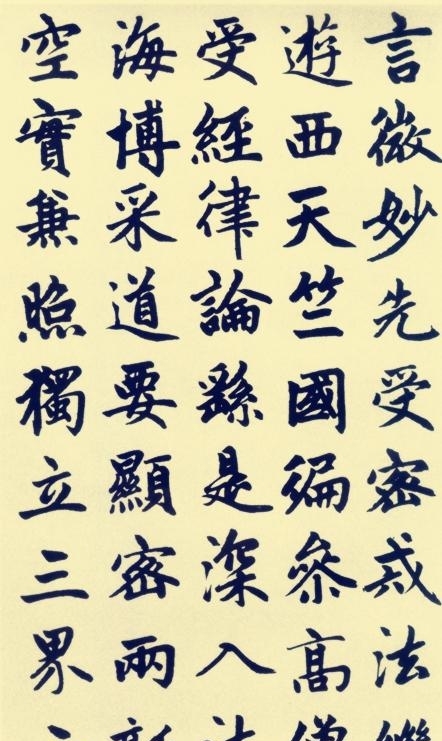 言微妙先受密戒法
遊西天竺國徧叅高
受經律論繇是深入
海博采道要顯密兩
空實兼照獨立三界